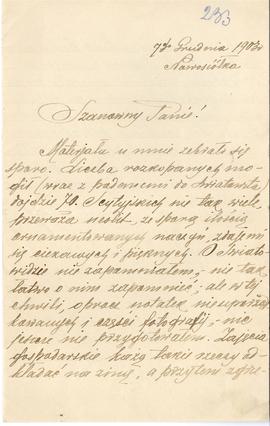 253
7go Grudnia 1903
Nowosiółka
Szanowny Panie!
Materjału u mnie zebrało się
sporo. Liczba rozkopanych mo-
gił (wraz z badaniami do
dojdzie 70. Scytyjskich nie tak wiele
przeważa neolit, ze sporą ilością
ornamentowanych naczyń, zdaje mi
się ciekawych i pięknych. O Świato-
widzie nie zapomniałem, nie tak
łatwo o nim zapomnieć, ale w tej
chwili, oprócz notatek nieuporząd-
kowanych i części fotografji, nic
jeszcze nie przygotowałem. Zajęcia
gospodarskie każą takie rzeczy od-
kładać na zimę, a przytem zgro-